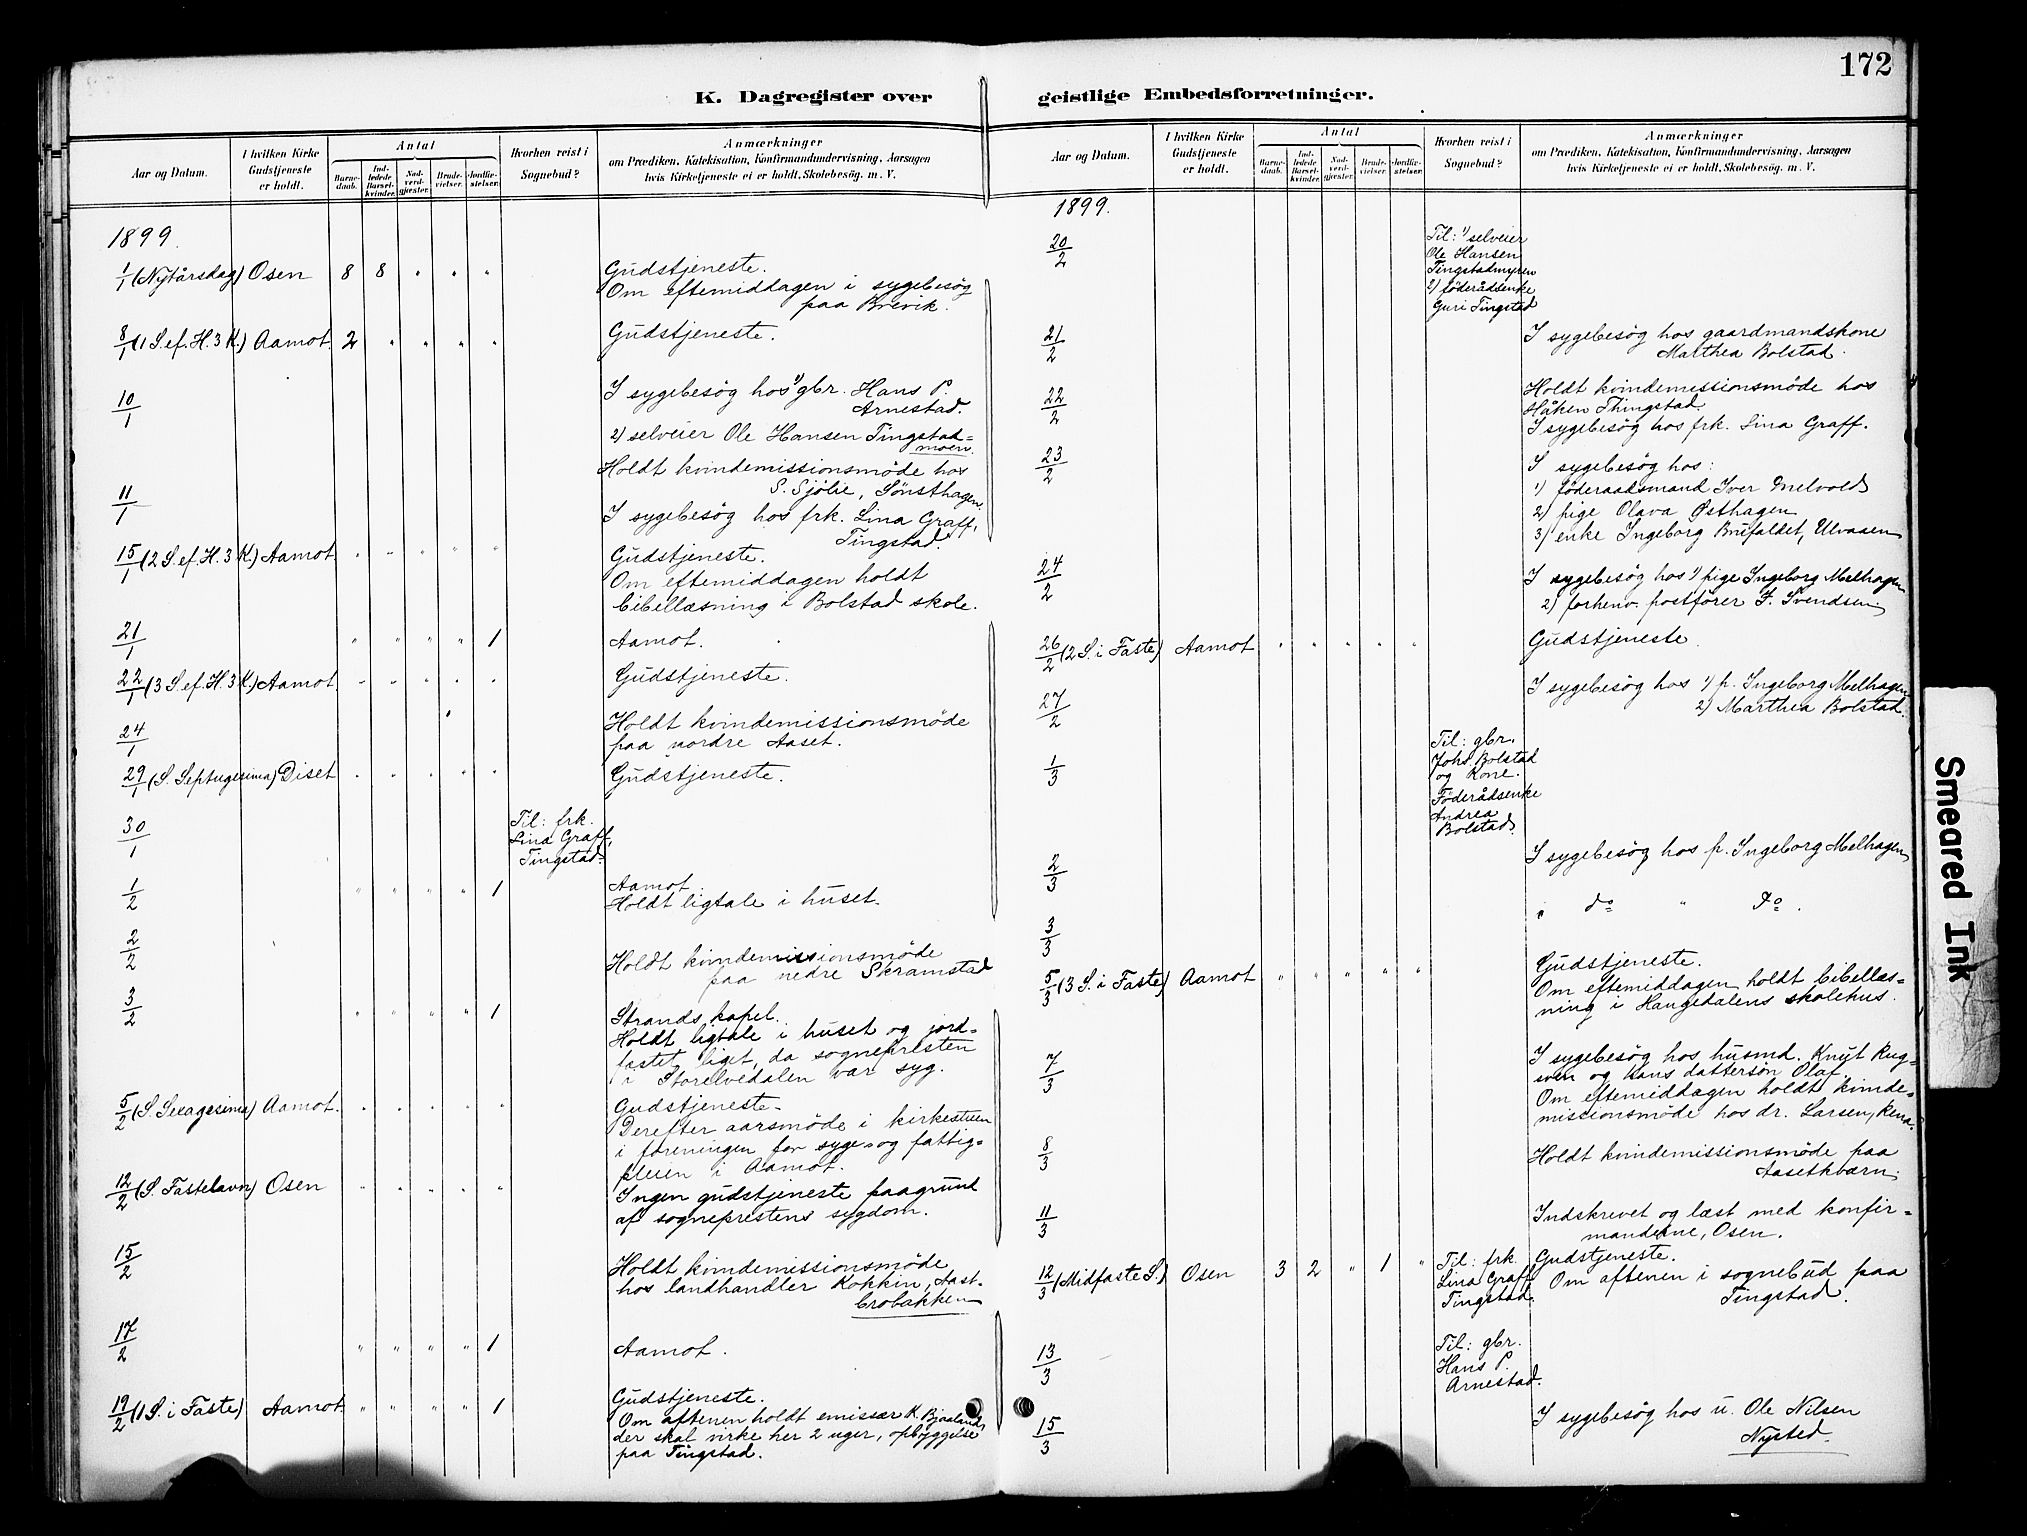 172
K. Dagregister over
Aar og Datum.
I hvilken Kirke Gudstjeneste er holdt.
Antal
Barnedaab.
Indledede Barselkvinder.
Nadverdgjester.
Brudevielser.
Jordfæstelser.
Hvorhen reist i Sognebud?
Anmærkninger
om Prædiken, Katekisation, Konfirmandundervisning, Aarsagen
hvis Kirketjeneste ei er holdt, Skolebesøg. m. V.
1899.
1/1 (Nytårsdag) Osen 8 8 " " " Gudstjeneste.
Om eftemiddagen i sygebesøg
paa Brevik.
8/1 (1 S. ef. H. 3 K.) Aamot. 2 " " " " Gudstjeneste.
10/1 I sygebesøg hos 1) gbr. Hans P.
Arnestad.
2) selveier Ole Hansen Tingstad=
moen.
Holdt kvindemissionsmøde hos
S. Sjølie, Sønsthagen.
11/1 I sygebesøg hos frk. Lina Graff,
Tingstad.
15/1 (2 S. ef. H. 3 K.) Aamot " " " " " Gudstjeneste.
Om eftemiddagen holdt
bibellæsning i Bolstad skole.
21/1 " " " " 1 Aamot.
22/1 (3 S. ef. H. 3 K.) Aamot. " " " " " Gudstjeneste.
24/1 Holdt kvindemissionsmøde
paa nordre Aaset.
29/1 (S. Septugesima) Diset " " " " " Gudstjeneste.
30/1 Til: frk.
Lina Graff,
Tingstad.
1/2 " " " " 1 Aamot.
Holdt ligtale i huset.
2/2 Holdt kvindemissionsmøde
paa nedre Skramstad
3/2 " " " " 1 Strands kapel.
Holdt ligtale i huset og jord=
fæstet liget, da sognepresten
i Storelvedalen var syg.
5/2 (S. Sexagesima) Aamot. " " " " " Gudstjeneste.
Derefter aarsmøde i kirkestuen
i foreningen for syge- og fattig=
pleien i Aamot.
12/2 (S. Fastelavn) Osen " " " " " Ingen gudstjeneste paagrund
af sogneprestens sygdom.
15/2 Holdt kvindemissionsmøde
hos landhandler Kokkin, Aast-
brobakken
17/2 " " " " 1 Aamot.
19/2 (1 S. i Faste) Aamot. " " " " 1 Gudstjeneste.
Om aftenen holdt emissær K. Bjaaland,
der skal virke her 2 uger, opbyggelse
paa Tingstad.
geistlige Embedsforretninger.
Aar og Datum.
I hvilken Kirke Gudstjeneste er holdt.
Antal
Barnedaab.
Indledede Barselkvinder.
Nadverdgjester.
Brudevielser.
Jordfæstelser.
Hvorhen reist i Sognebud?
Anmærkninger
om Prædiken, Katekisation, Konfirmandundervisning, Aarsagen
hvis Kirketjeneste ei er holdt, Skolebesøg. m. V.
1899.
20/2 Til: 1) selveier
Ole Hansen
Tingstadmyren
2) føderådsenke
Guri Tingstad
21/2 I sygebesøg hos gaardmandskone
Marthea Bolstad.
22/2 Holdt kvindemissionsmøde hos
Håken Thingstad.
I sygebesøg hos frk. Lina Graff.
23/2 I sygebesøg hos:
1) føderaadsmand Iver Melvold
2) pige Olava Østhagen
3) enke Ingeborg Brufaldet, Ulvaaen
24/2 I sygebesøg hos 1) pige Ingeborg Melhagen
2) forhenv. postfører S. Svendsen.
26/2 (2 S. i Faste) Aamot " " " " " Gudstjeneste.
27/2 I sygebesøg hos 1) p. Ingeborg Melhagen
2) Marthea Bolstad.
1/3 Til: gbr.
Johs. Bolstad
og Kone.
Føderådsenke
Andrea
Bolstad.
2/3 I sygebesøg hos p. Ingeborg Melhagen
3/3 i do " do.
5/3 (3 S. i Faste) Aamot " " " " " Gudstjeneste.
Om eftemiddagen holdt bibellæs=
ning i Haugedalens skolehus.
7/3 I sygebesøg hos husmd. Knut Rug-
sven og Hans dattersøn Olaf.
Om eftemiddagen holdt kvinde=
missionsmøde hos dr. Larsen, Rena.
8/3 Holdt kvindemissionsmøde paa
Aasetkværn.
11/3 Indskrevet og læst med konfir=
manderne, Osen.
12/3 (Midfaste S.) Osen 3 2 " 1 " Til: frk.
Lina Graff
Tingstad.
Gudstjeneste.
Om aftenen i sognebud paa
Tingstad.
13/3 Til: gbr.
Hans P.
Arnestad.
15/3 I sygebesøg hos u. Ole Nilsen
Nysted.
Smeared Ink